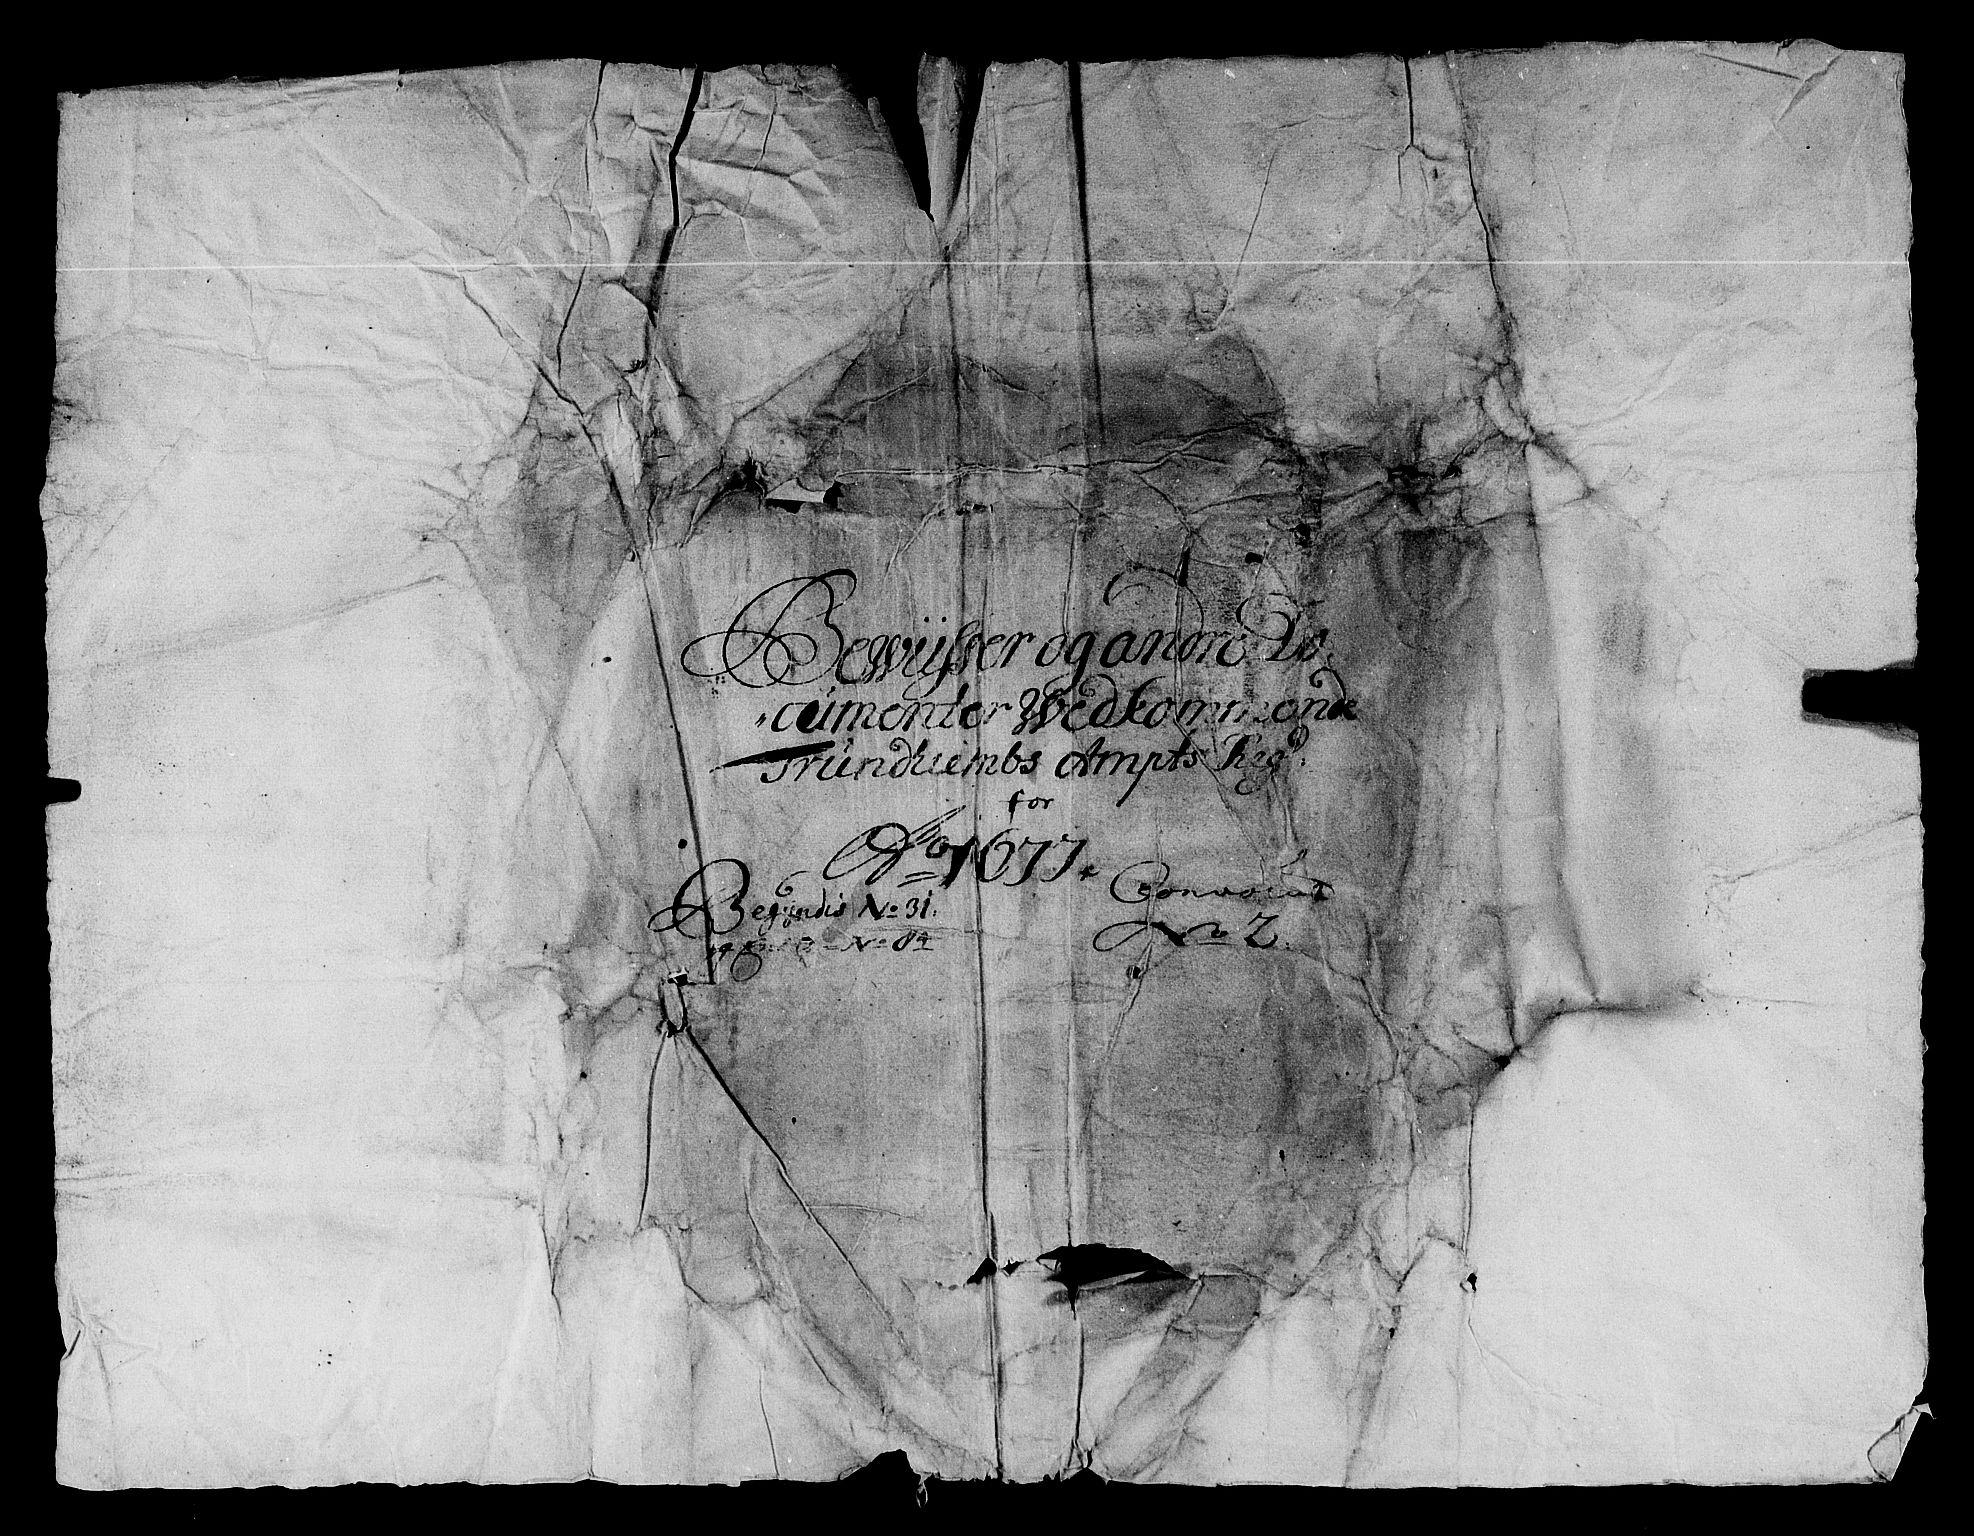 Bewijsser og andre Do
cumenter Wedkommende
Trundhiembs Ampts Reg:
for
Ao 1677.
Begyndis No 31. Convoलut
No 84 No 2.